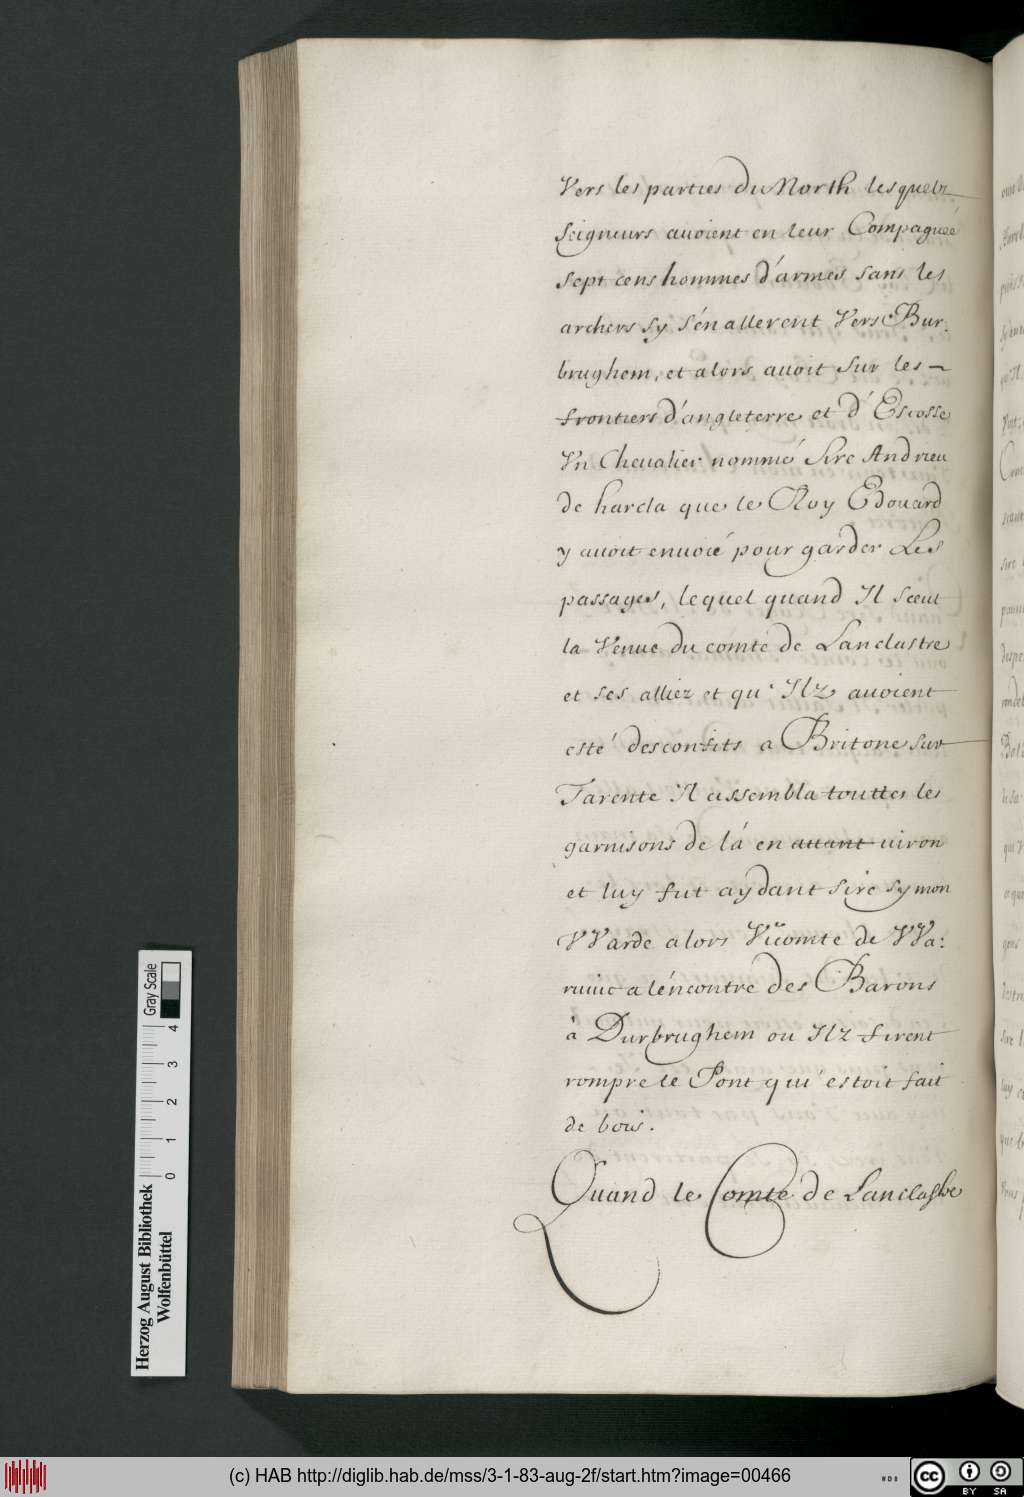 Vers les parties du North lesquelz
Seigneurs avoient en leur Compagnée
sept cens hommes d'armes sans les
archers sy s'én allerent Vers Bur.
brughem, et alors avoit sur les
frontiers d'angleterre et d'Escosse
Vn Chevalier nommé Sire Andrieu
de harcla que le Roy Edouard
y avoit envoié pour garder Les
passages, lequel quand Il sceut
la Venue du comte de Lanclastre
et ses alliez et qu'Ilz avoient
esté desconfits a Britone sur
Tarente Il assembla touttes les
garnisons de lá en attant viron
et luy fut aydant sire symon
VVarde alors Vicomte de VVa:
ruiuc a léncontre des Barons
à Durbrughem ou Ilz firent
rompre le Pont qui estoit fait
de bois.
Quand le Comte de Lanclastre
Gray Scale
0 1 2 3 4
Herzog August Bibliothek
Wolfenbüttel
(c) HAB http://diglib.hab.de/mss/3-1-83-aug-2f/start.htm?image=00466
WDB
cc BY SA